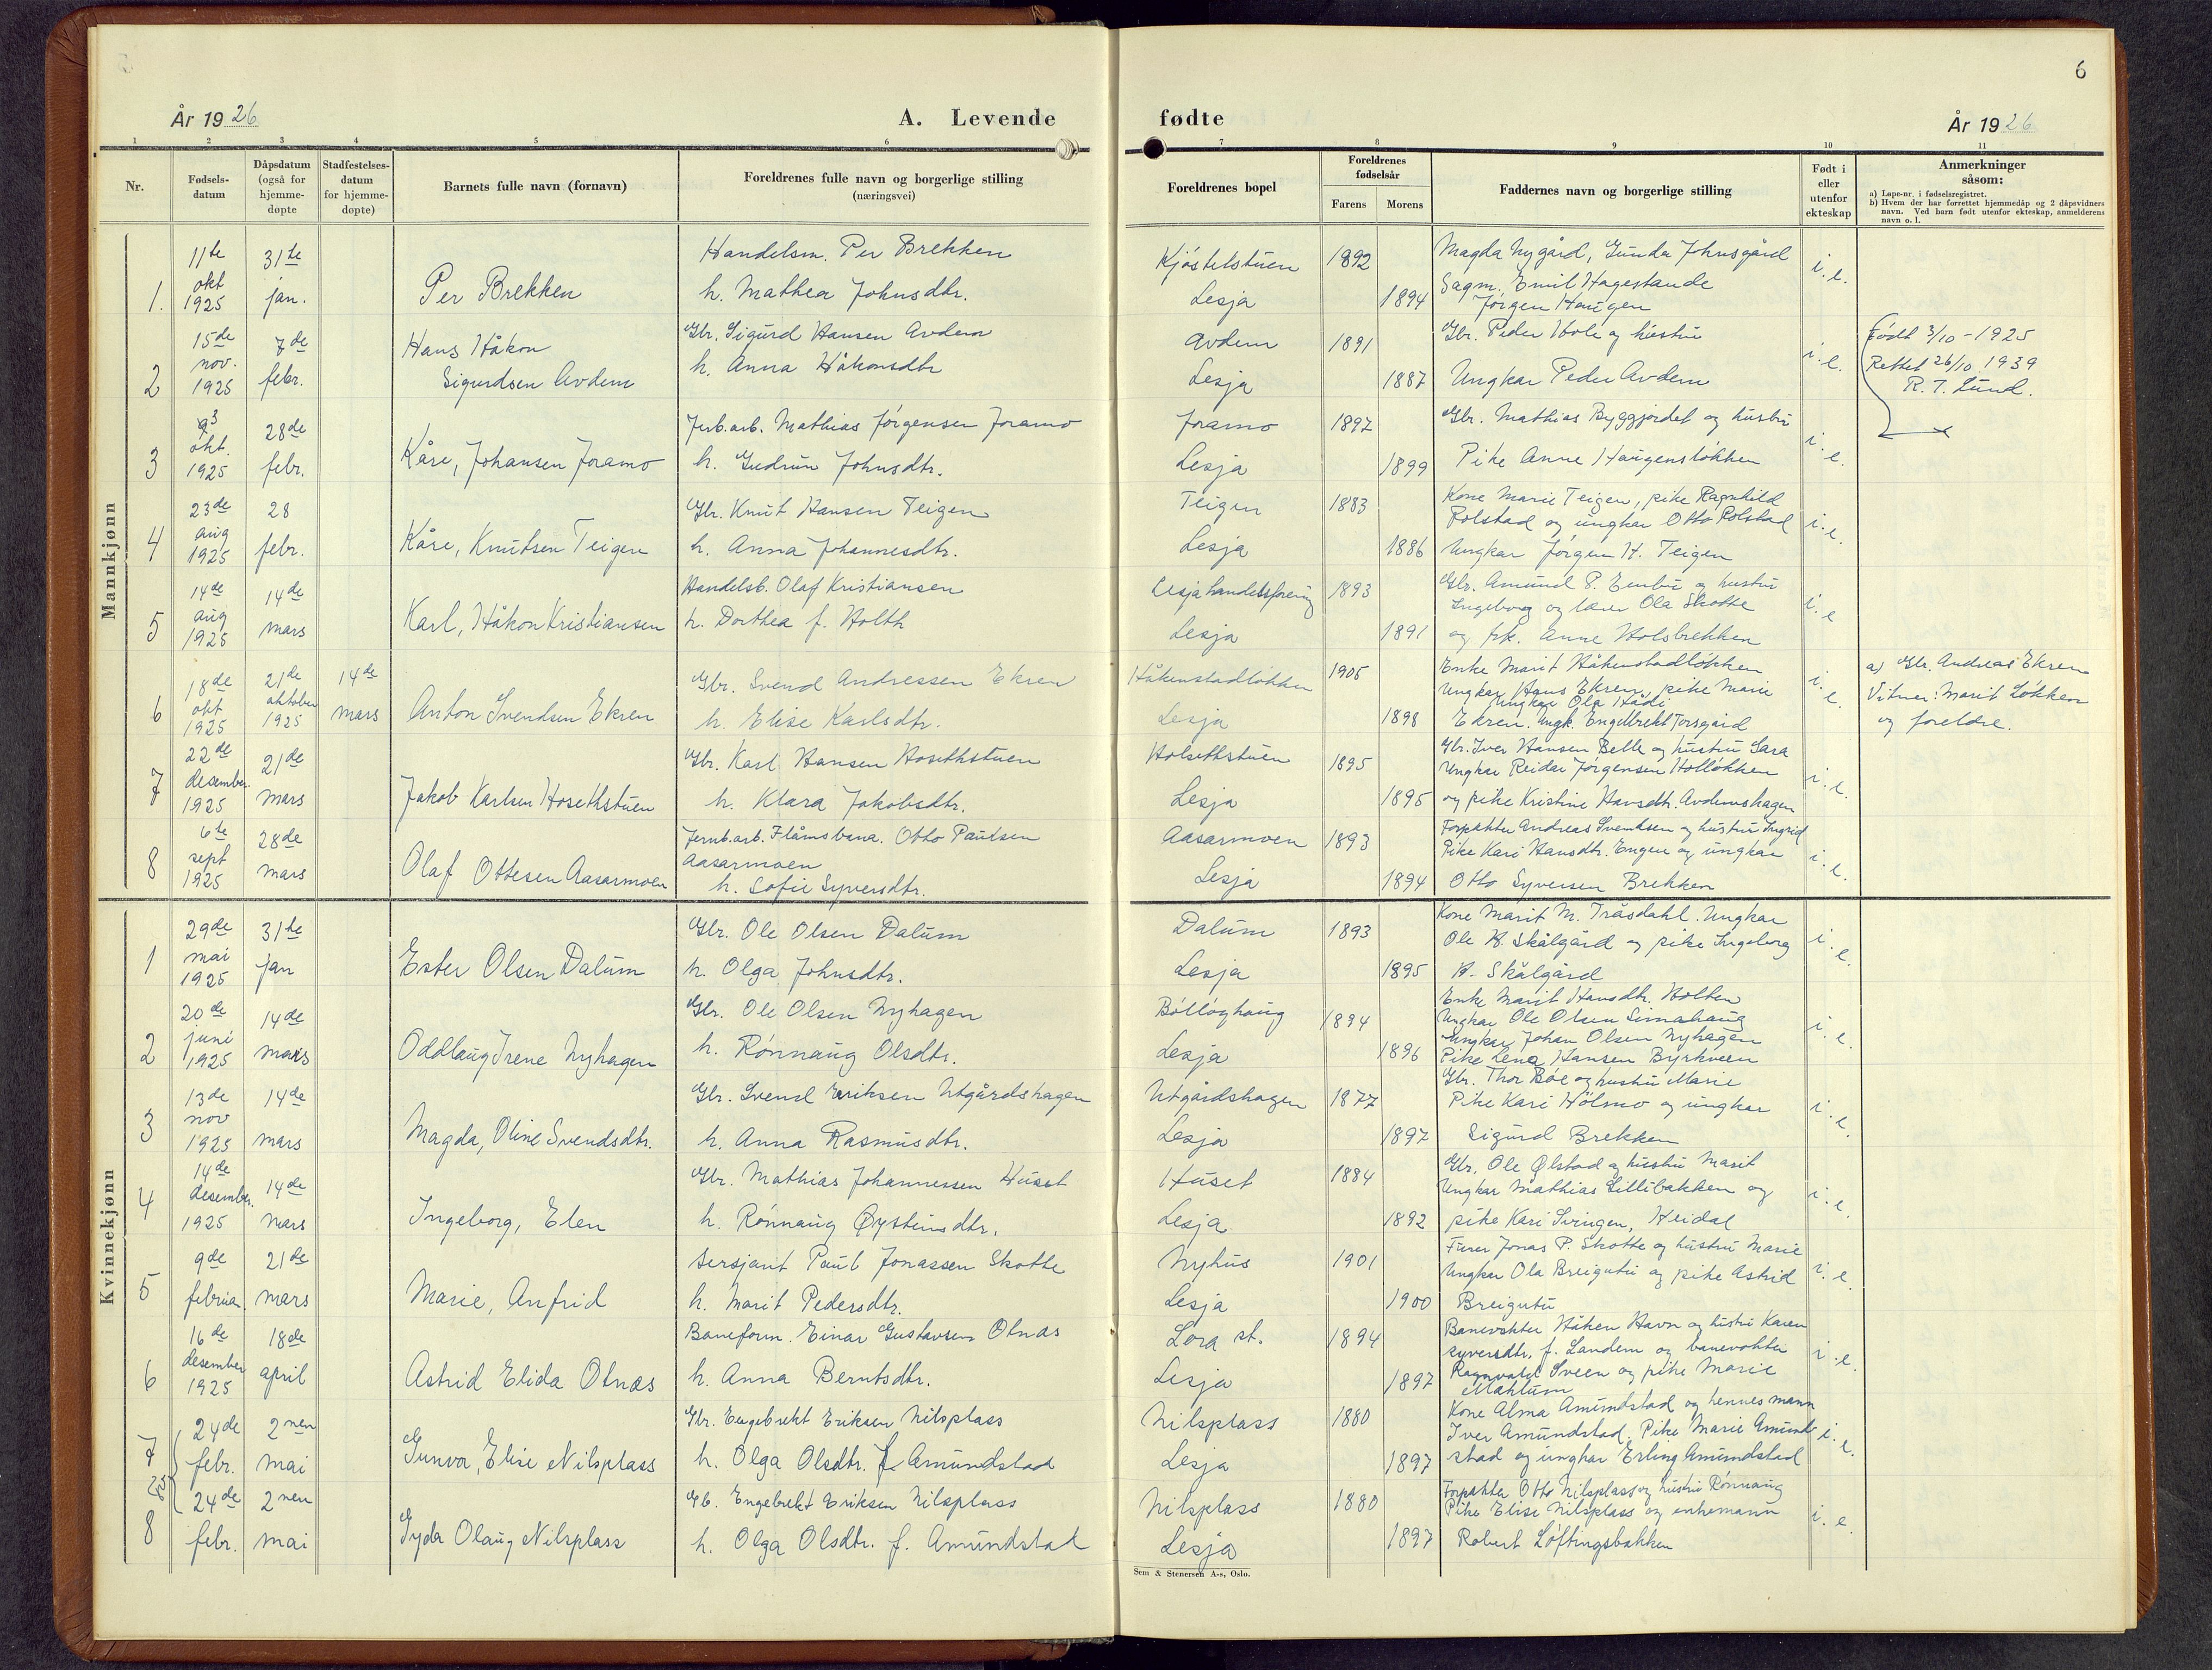 6
År 1926
A. Levende fødte
År 1926
1 2 3 4 5 6 7 8 9 10 11
Nr.
Fødsels-
datum
Dåpsdatum
(også for
hjemme-
døpte
Stadfestelses-
datum
for hjemme-
døpte)
Barnets fulle navn (fornavn)
Foreldrenes fulle navn og borgerlige stilling
(næringsvei)
Foreldrenes bopel
Foreldrenes
fødselsår
Farens
Morens
Faddernes navn og borgerlige stilling
Født i
eller
utenfor
ekteskap
Anmerkninger
såsom:
a) Løpe-nr. i fødselsregistret.
b) Hvem der har forrettet hjemmedåp og 2 dåpsvidners
navn. Ved barn født utenfor ekteskap, anmelderens
navn o. l.
Mannkjønn
1.
11te
okt
1925
31te
jan.
Per Brekken
Handelsm. Per Brekken
h. Mathea Johnsdtr.
Kjøstelstuen
Lesja
1892
1894
Magda Nygård, Gunda Johnsgård
Sagm. Emil Hagestande
Jørgen Haugen
i. e.
2
15de
nov.
1925
7de
febr.
Hans Håkon
Sigurdsen Avdem
Gbr. Sigurd Hansen Avdem
h. Anna Håkonsdtr
Avdem
Lesja
1891
1887
Gbr. Peder Hole og hustru
Ungkar Peder Avdem
i. e.
Født 3/10 - 1925
Rettet 26/10 1939
R. T. Lund.
3
3
okt.
1925
28de
febr.
Kåre, Johansen Joramo
Jerb.arb. Mathias Jørgensen Joramo
h. Gudrun Johnsdtr.
Joramo
Lesja
1897
1899
Gbr. Mathias Byggjordet og hustru
Pike Anne Haugensløkken
i. e.
4
23de
aug
1925
28
febr.
Kåre, Knutsen Teigen
Gbr. Knut Hansen Teigen
h. Anna Johannesdtr.
Teigen
Lesja
1883
1886
Kone Marie Teigen, pike Ragnhild
Rolstad og ungkar Otto Rolstad
Ungkar Jørgen H. Teigen
i. e.
5
14de
aug
1925
14de
mars
Karl, Håkon Kristiansen
Handelsb. Olaf Kristiansen
h. Dorthea f. Holth
Lesja handelsforening
Lesja
1893
1891
Gbr. Amund P. Enbu og hustru
Ingeborg og lærer Ola Skotte
og frk. Anne Holsbrekken
i. e
6
18de
okt
1925
21de
oktober
1925
14de
mars
Anton Svendsen Ekren
Gbr. Svend Andressen Ekren
h. Elise Karlsdtr.
Håkenstadløkken
Lesja
1905
1898
Enke Marit Håkenstadløkken
Ungkar Hans Ekren, pike Marie
Ungkar Ola Hådi
Ekren. Ungk. Engelbrekt Torsgård
i. e.
a) Gbr. Andreas Ekren
Vitner: Marit Løkken
og foreldre.
7
22de
desember.
1925
21de
mars
Jakob Karlsen Hosethstuen
Gbr. Karl Hansen Hosethstuen
h. Klara Jakobsdtr.
Holsethstuen
Lesja
1895
1895
Gbr. Iver Hansen Belle og hustru Sara
Ungkar Reidar Jørgensen Holløkken
og pike Kristine Hansdtr. Avdemshagen
i. e.
8
6te
sept
1925
28de
mars
Olaf Ottesen Aasarmoen
Jernb.arb. Flåmsbana. Otto Paulsen
Aasarmoen
h. Sofie Syversdtr.
Aasarmoen
Lesja
1893
1894
Forpakter Andreas Svendsen og hustru Ingrid
Pike Kari Hansdtr. Engen og ungkar
Otto Syversen Brekken
i. e.
Kvinnekjønn
1
29de
mai
1925
31te
jan
Ester Olsen Dalum
Gbr. Ole Olsen Dalum
h. Olga Johnsdtr.
Dalum
Lesja
1893
1895
Kone Marit M. Tråsdahl. Ungkar
Ole K. Skålgård og pike Ingeborg
K. Skålgård
i. e.
2
20de
juni
1925
14de
mars
Oddlaug Irene Nyhagen
Gbr. Ole Olsen Nyhagen
h. Rønnaug Olsdtr.
Bølløghaug
Lesja
1894
1896
Enke Marit Hansdtr. Holten
Ungkar Ole Olsen Simahaug
Ungkar Johan Olsen Nyhagen
Pike Lena Hansen Byrkveen
i. e.
3
13de
nov
1925
14de
mars
Magda, Oline Svendsdtr.
Gbr. Svend Eriksen Utgårdshagen
h. Anna Rasmusdtr.
Utgårdshagen
Lesja
1877
1897
Gbr. Thor Bøe og hustru Marie
Pike Kari Hølmo og ungkar
Sigurd Brekken
i. e.
4
14de
desember.
1925
14de
mars
Ingeborg, Elen
Gbr. Mathias Johannessen Huset
h. Rønnaug Øysteinsdtr.
Huset
Lesja
1884
1892
Gbr. Ole Ølstad og hustru Marit
Ungkar Mathias Lillibakken og
pike Kari Svingen, Heidal
i. e.
5
9de
februar.
21de
mars
Marie, Anfrid
Sersjant Paul Jonassen Skotte
h. Marit Pedersdtr.
Nyhus
Lesja
1901
1900
Furer Jonas P. Skotte og hustru Marie
Ungkar Ola Breigutu og pike Astrid
Breigutu
i. e.
6
16de
desember
1925
18de
april
Astrid Elida Olnæs
Baneform. Einar Gustavsen Olnæs
h. Anna Berntsdtr.
Lora st.
Lesja
1894
1897
Banevokter Håken Havn og hustru Karen
Syversdtr. f. Landem og banevokter
Ragnvald Sveen og pike Marie
Mæhlum
i. e.
7
24de
febr.
2nen
mai
Gunvor, Elise Nilsplass
Gbr. Engebrekt Eriksen Nilsplass
h. Olga Olsdtr. f. Amundstad
Nilsplass
Lesja
1880
1897
Kone Alma Amundstad og hennes mann
Iver Amundstad. Pike Marie Amund-
stad og ungkar Erling Amundstad
i. e.
8
24de
febr.
2nen
mai
Gyda Olaug Nilsplass
Gb. Engebrekt Eriksen Nilsplass
h. Olga Olsdtr. f. Amundstad
Nilsplass
Lesja
1880
1897
Forpakter Otto Nilsplass og hustru Rønnaug
Pike Elise Nilsplass og enkemann
Robert Løftingsbakken
i. e.
Sem & Stenersen A-s, Oslo.